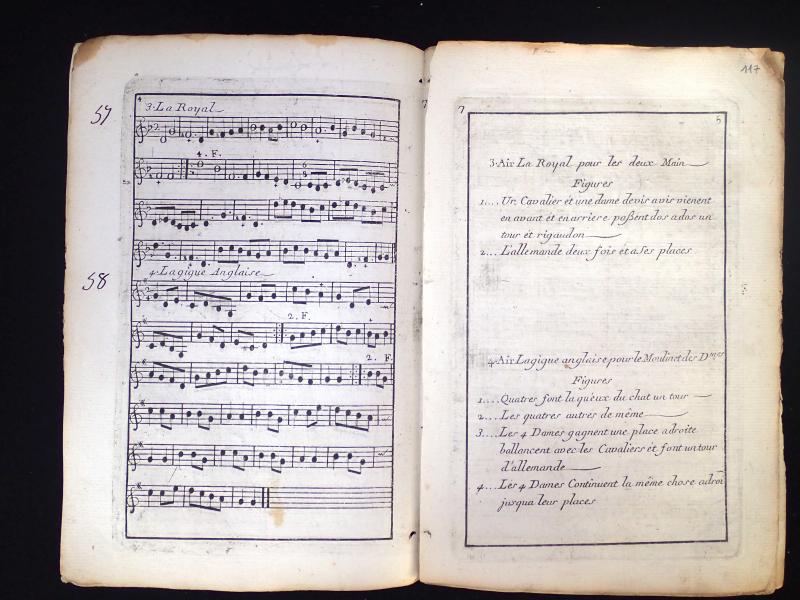 57
4
3. La Royal
4. F.
58
4. Lagique Anglaise
2. F.
2. F.
117
7
5
3. Air La Royal pour les deux Main
Figures
1.... Un Cavalier et une dame devis avis vienent
en avant et en arriere passent dos a dos un
tour et rigaudon
2... L'allemande deux fois et a ses places
4. Air Lagigue anglaise pour le Moulinet des Dmes
Figures
1.... Quatres font la queux du chat un tour
2.... Les quatres autres de même
3.... Les 4 Dames gagnent une place adroite
balloncent avec les Cavaliers et font un tour
d'allemande
4.... Les 4 Dames Continuent la même chose adroi
jusqua leur places